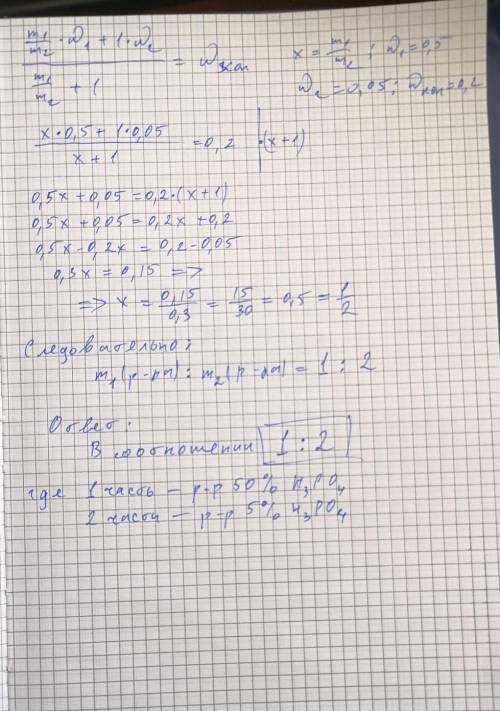 m₁/m₂ · ω₁ + 1 · ω₂
m₁/m₂ + 1
= ω кон
x = m₁/m₂ ; ω₁ = 0,5
ω₂ = 0,05 ; ω кон = 0,2
x · 0,5 + 1 · 0,05
x + 1
= 0,2 | · (x + 1)
0,5x + 0,05 = 0,2 · (x + 1)
0,5x + 0,05 = 0,2x + 0,2
0,5x - 0,2x = 0,2 - 0,05
0,3x = 0,15 =>
=> x = 0,15/0,3 = 15/30 = 0,5 = 1/2
Следовательно:
m₁ (р-ра) : m₂ (р-ра) = 1 : 2
Ответ:
В соотношении 1 : 2
где 1 часть — р-р 50% H₃PO₄
2 части — р-р 5% H₃PO₄